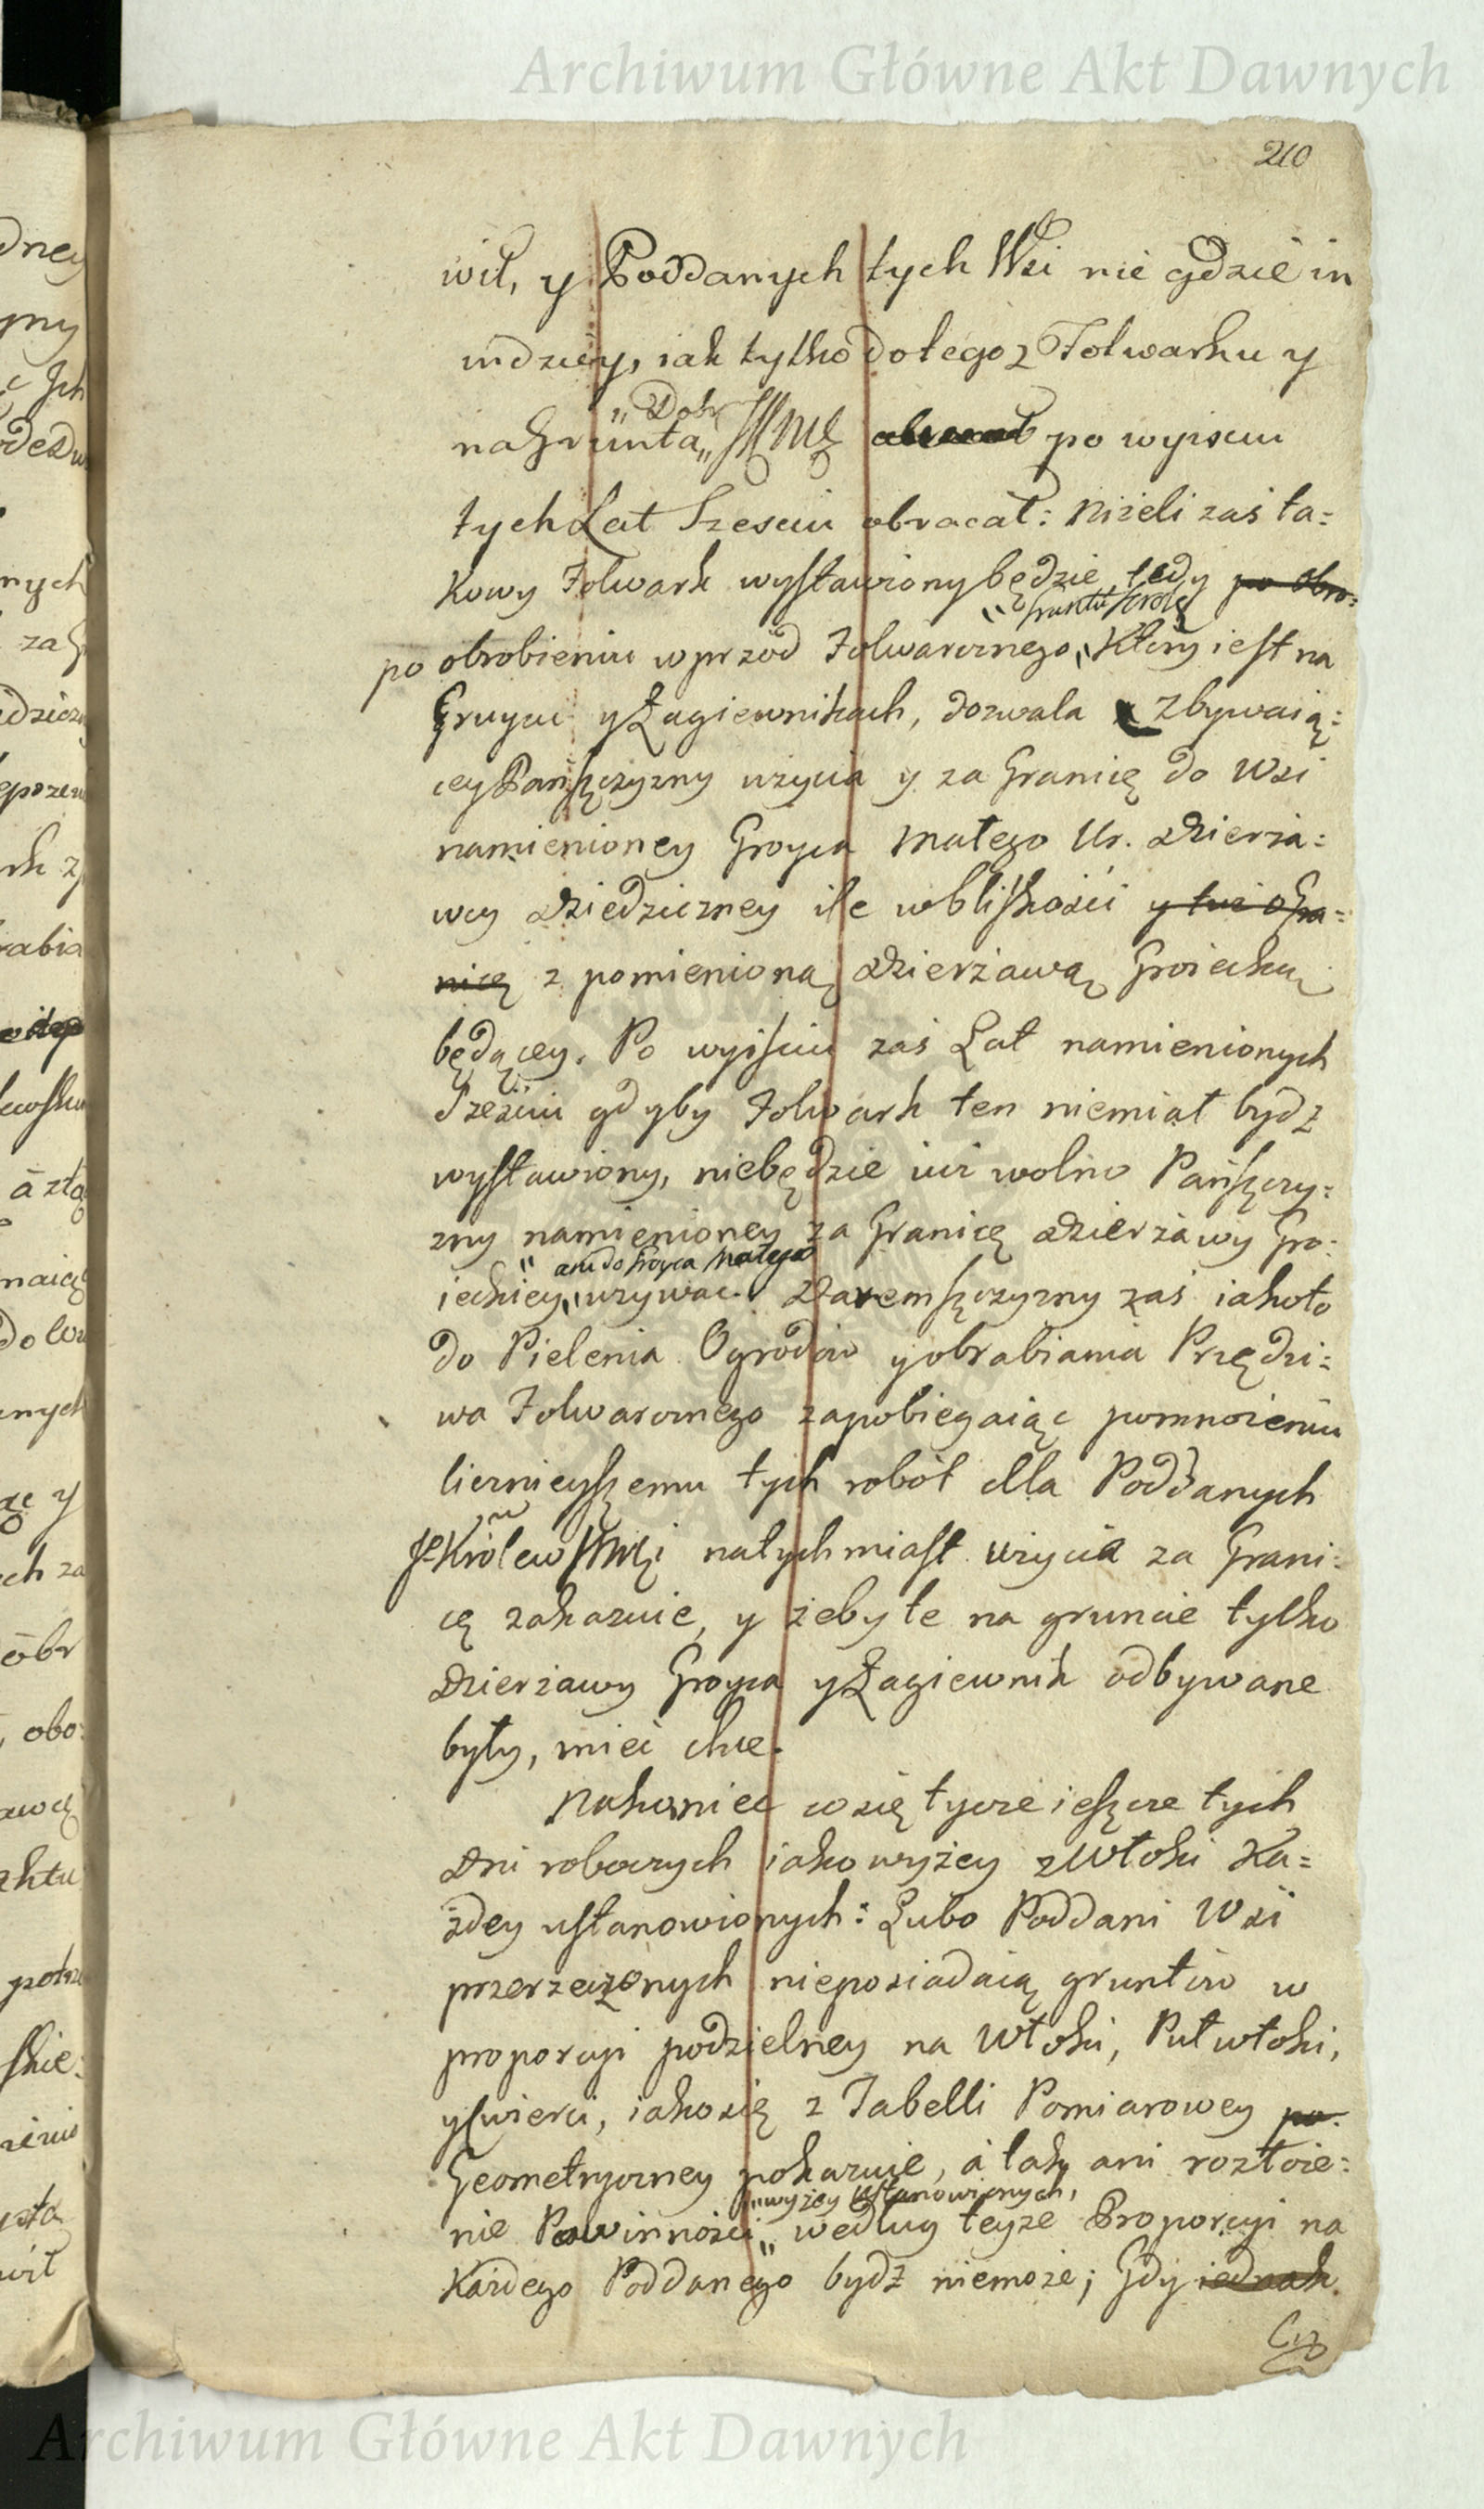 Archiwum Główne Akt Dawnych
210
wił, y Poddanych tych Wsi nie gdzie in
indziey, iak tylko do tego z Folwarku y
„Dobr
na Grunta„ JKMci po wyisciu
tych Lat Szesciu obracał: Niżeli zaś ta=
kowy Folwark wystawiony będzie, tedy po obro=
„Gruntu
po obrobieniu wprzód Folwarcznego„ który iest na
Gruycu y Łagiewnikach, dozwala zbywaią=
cey Pańszczyzny użycia y za Granicę do Wsi
namienioney Groyca Małego Ur. Dzierża=
wcy Dziedziczney ile w bliskości y tuż o Gra=
nicę z pomienioną Dzierżawą Groiecką
będącey. Po wyiściu zaś Lat namienionych
Sześciu gdyby Folwark ten niemiał bydź
wystawiony, niebędzie iuż wolno Pańszczy=
zny namienioney za Granicę Dzierżawy Gro=
„ ani do Groyca Małego
ieckiey„ używać. Daremszczyzny zaś iakoto
do Pielenia Ogrodów y obrabiania Przędzi=
wa Folwarcznego zapobiegaiąc pomnożeniu
licznieyszemu tych robót dla Poddanych
JKrólewSkMći natychmiast użycia za Grani=
cę zakazuie, y żeby te na gruncie tylko
Dzierżawy Groyca y Łagiewnik odbywane
były, mieć chce.
Nakoniec co się tycze ieszcze tych
Dni roboczych iako wyżey z Włoki Ka=
żdey ustanowionych: Lubo Poddani Wsi
przerzeczonych nieposiadaią gruntów w
proporcyi podzielney na Włoki, Pułwłoki,
y ćwierci, iako się z Tabelli Pomiarowey po=
Geometryczney pokazuie, á tak ani rozłoże=
„wyżey ustanowionych,
nie Powinności„ według teyże Proporcyi na
Każdego Poddanego bydź niemoże; Gdy iednak
Czy
Archiwum Główne Akt Dawnych